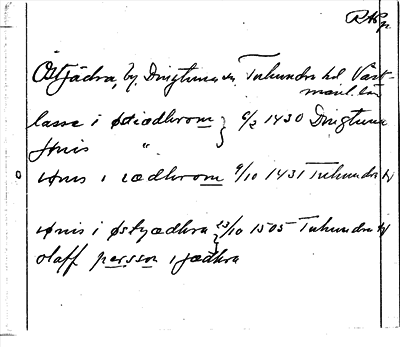 RAp
Östjädra, by, Dingtuna sn, Tuhundra hd, Väst-
manl. län
lasse i østiædhrom } 6/2 1430 Dingtuna
jønis "
iønis i iædhrom 9/10 1431 Tuhundra hd
iønis i østyædhra } 23/10 1505 Tuhundra hd
olaff persson i jædhra